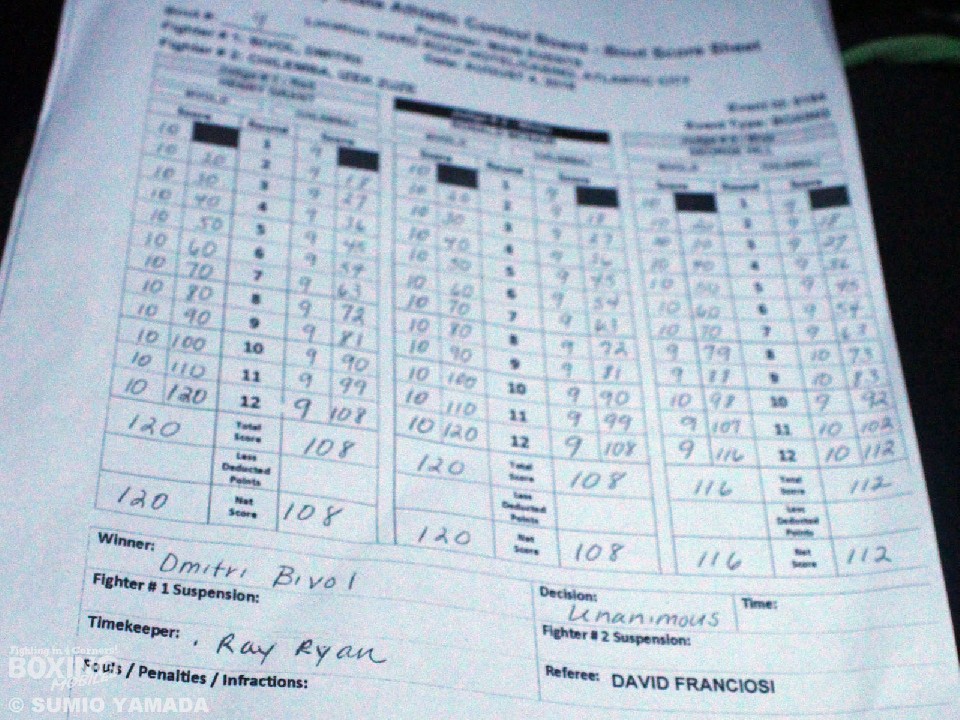 State Athletic Control Board - Bout Score Sheet
Bout #: 9
Fighter # 1: BIVOL, DMITRII
Fighter # 2: CHILEMBA, ISAAC
ATLANTIC CITY
Date: AUGUST 4, 2018
Event Type: BOXING
Score Round Score Score Round Score Score Round Score
10 1 9 10 1 9 10 1 9
10 20 2 9 18 10 20 2 9 18 10 20 2 9 18
10 30 3 9 27 10 30 3 9 27 10 30 3 9 27
10 40 4 9 36 10 40 4 9 36 10 40 4 9 36
10 50 5 9 45 10 50 5 9 45 10 50 5 9 45
10 60 6 9 54 10 60 6 9 54 10 60 6 9 54
10 70 7 9 63 10 70 7 9 63 10 70 7 9 63
10 80 8 9 72 10 80 8 9 72 9 79 8 10 73
10 90 9 9 81 10 90 9 9 81 9 88 9 10 83
10 100 10 9 90 10 100 10 9 90 10 98 10 9 92
10 110 11 9 99 10 110 11 9 99 9 107 11 10 102
10 120 12 9 108 10 120 12 9 108 9 116 12 10 112
120 Total Score 108 120 Total Score 108 116 Total Score 112
Less Deducted Points Less Deducted Points Less Deducted Points
120 Net Score 108 120 Net Score 108 116 Net Score 112
Winner: Dmitri Bivol
Decision: Unanimous Time:
Fighter # 1 Suspension:
Fighter # 2 Suspension:
Timekeeper: Ray Ryan
Referee: DAVID FRANCIOSI
Fouls / Penalties / Infractions:
Fighting in 4 Corners!
BOXING
MOBILE
© SUMIO YAMADA